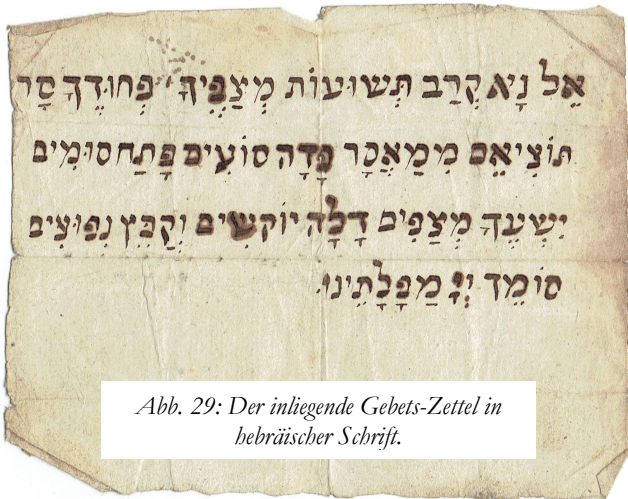 אֵל נָא קְרַב תְּשוּעוֹת מְצַפֶּיךָ פְּחוּדֶךָ סָר
תּוֹצִיאֵם מִמַאֲכָר פָּדָה סוֹעִים פָּתַח סוּמִים
יִשְׁעֲךָ מְצַפִּים דָלָה יוֹקְשִׁים וְקַבֵּץ נְפוּצִים
סוֹמֵך יְיָ מַפָּלָתֵינוּ.
Abb. 29: Der inliegende Gebets-Zettel in
hebräischer Schrift.